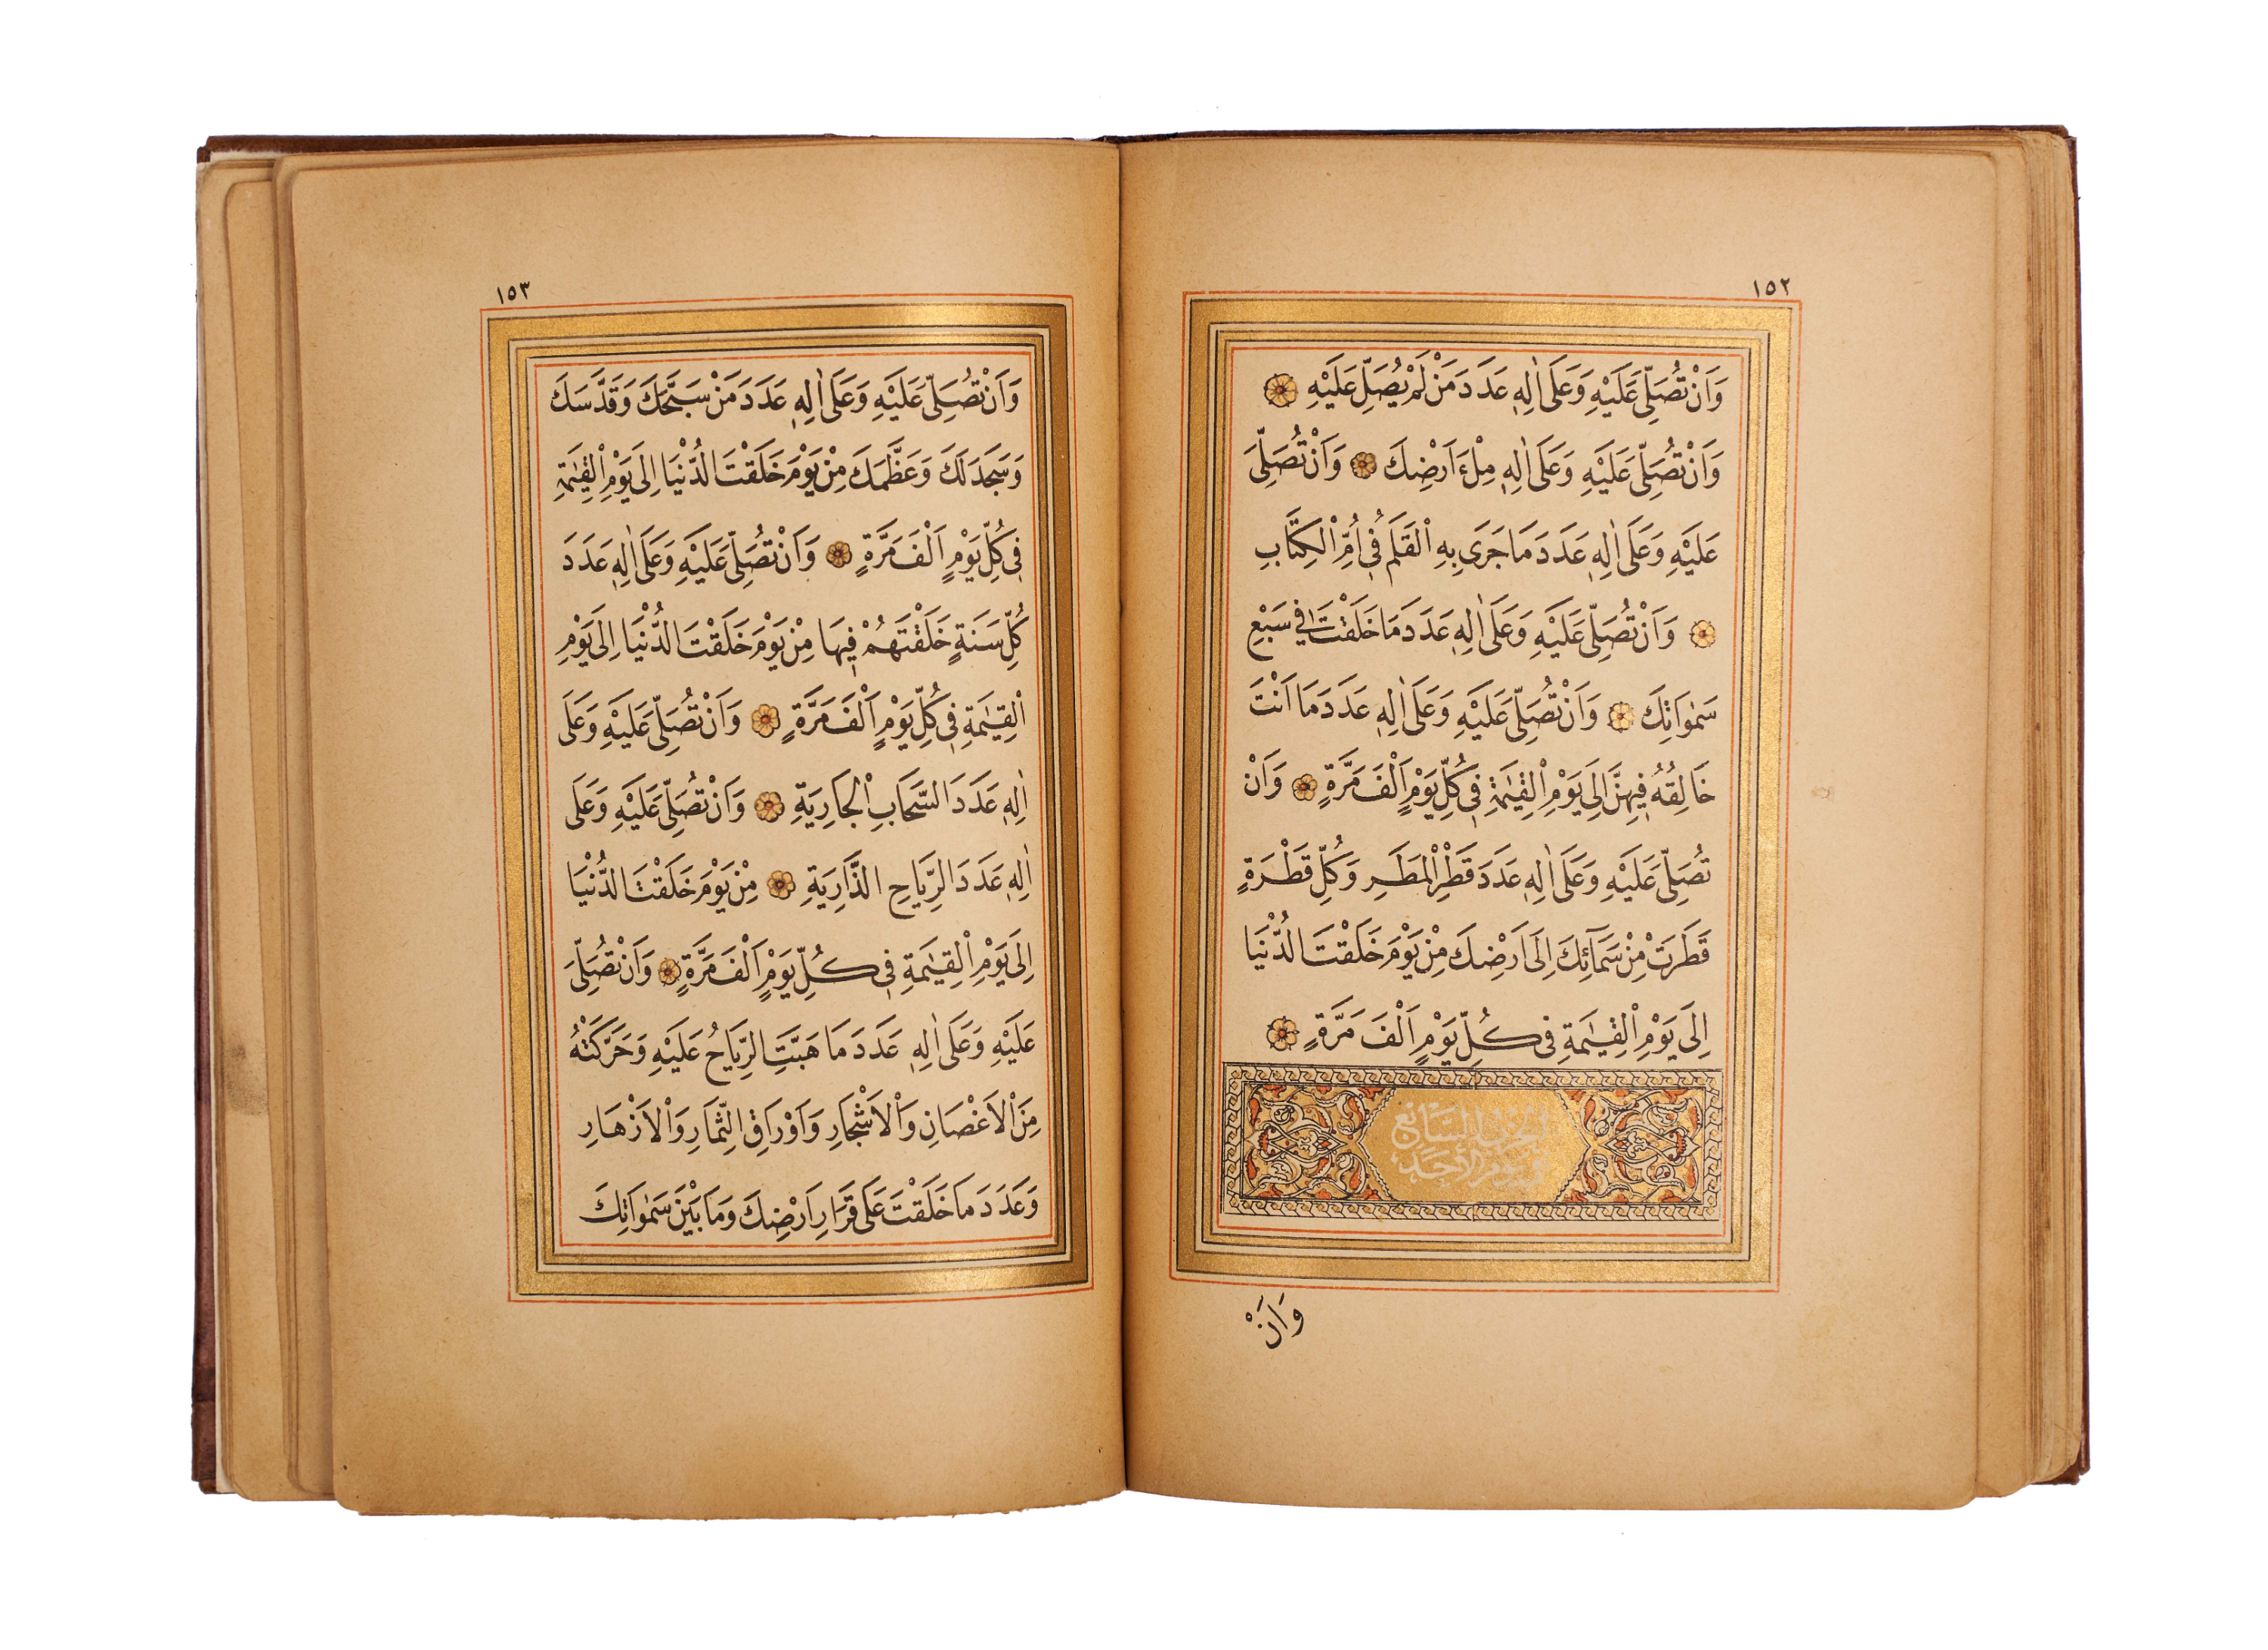 ١٥٢
وَاَنْ تُصَلِّيَ عَلَيْهِ وَعَلَى اٰلِهٖ عَدَدَ مَنْ لَمْ يُصَلِّ عَلَيْهِ
وَاَنْ تُصَلِّيَ عَلَيْهِ وَعَلَى اٰلِهٖ مِلْءَ اَرْضِكَ وَاَنْ تُصَلِّيَ
عَلَيْهِ وَعَلَى اٰلِهٖ عَدَدَ مَا جَرَى بِهِ الْقَلَمُ فِي اُمِّ الْكِتَابِ
وَاَنْ تُصَلِّيَ عَلَيْهِ وَعَلَى اٰلِهٖ عَدَدَ مَا خَلَقْتَ فِي سَبْعِ
سَمٰوَاتِكَ وَاَنْ تُصَلِّيَ عَلَيْهِ وَعَلَى اٰلِهٖ عَدَدَ مَا اَنْتَ
خَالِقُهُ فِيهِنَّ اِلَى يَوْمِ الْقِيٰمَةِ فِي كُلِّ يَوْمٍ اَلْفَ مَرَّةٍ وَاَنْ
تُصَلِّيَ عَلَيْهِ وَعَلَى اٰلِهٖ عَدَدَ قَطْرِ الْمَطَرِ وَكُلِّ قَطْرَةٍ
قَطَرَتْ مِنْ سَمَآئِكَ اِلَى اَرْضِكَ مِنْ يَوْمَ خَلَقْتَ الدُّنْيَا
اِلَى يَوْمِ الْقِيٰمَةِ فِي كُلِّ يَوْمٍ اَلْفَ مَرَّةٍ
الحزب السابع
في يوم الأحد
وَاَنْ
١٥٣
وَاَنْ تُصَلِّيَ عَلَيْهِ وَعَلَى اٰلِهٖ عَدَدَ مَنْ سَبَّحَكَ وَقَدَّسَكَ
وَسَجَدَ لَكَ وَعَظَّمَكَ مِنْ يَوْمَ خَلَقْتَ الدُّنْيَا اِلَى يَوْمِ الْقِيٰمَةِ
فِي كُلِّ يَوْمٍ اَلْفَ مَرَّةٍ وَاَنْ تُصَلِّيَ عَلَيْهِ وَعَلَى اٰلِهٖ عَدَدَ
كُلِّ سَنَةٍ خَلَقْتَهُمْ فِيهَا مِنْ يَوْمَ خَلَقْتَ الدُّنْيَا اِلَى يَوْمِ
الْقِيٰمَةِ فِي كُلِّ يَوْمٍ اَلْفَ مَرَّةٍ وَاَنْ تُصَلِّيَ عَلَيْهِ وَعَلَى
اٰلِهٖ عَدَدَ السَّحَابِ الْجَارِيَةِ وَاَنْ تُصَلِّيَ عَلَيْهِ وَعَلَى
اٰلِهٖ عَدَدَ الرِّيَاحِ الذَّارِيَةِ مِنْ يَوْمَ خَلَقْتَ الدُّنْيَا
اِلَى يَوْمِ الْقِيٰمَةِ فِي كُلِّ يَوْمٍ اَلْفَ مَرَّةٍ وَاَنْ تُصَلِّيَ
عَلَيْهِ وَعَلَى اٰلِهٖ عَدَدَ مَا هَبَّتِ الرِّيَاحُ عَلَيْهِ وَحَرَّكَتْهُ
مِنَ الْاَغْصَانِ وَالْاَشْجَارِ وَاَوْرَاقِ الثِّمَارِ وَالْاَزْهَارِ
وَعَدَدَ مَا خَلَقْتَ عَلَى قَرَارِ اَرْضِكَ وَمَا بَيْنَ سَمٰوَاتِكَ